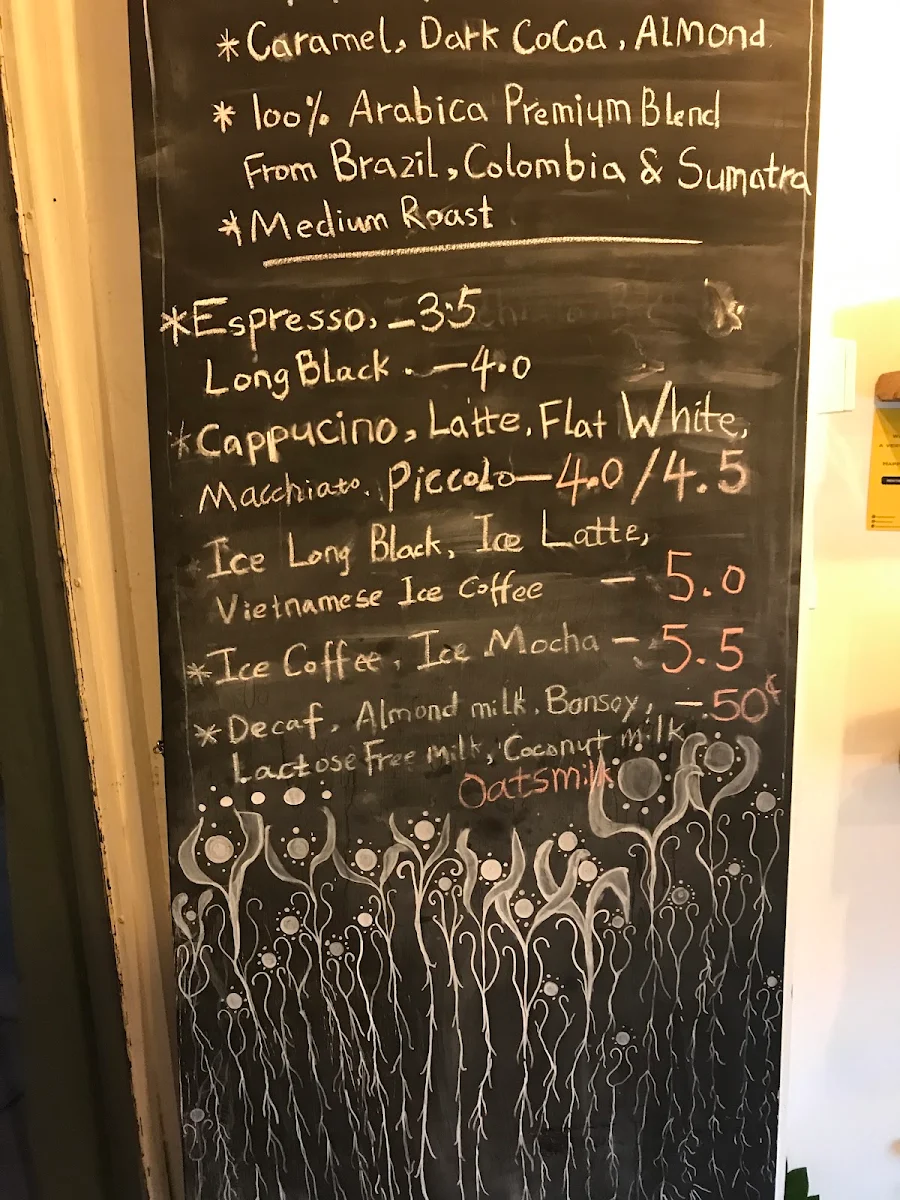 *Caramel, Dark CoCoa, ALMond
* 100% Arabica Premium Blend
From Brazil, Colombia & Sumatra
*Medium Roast
*Espresso, - 3.5
Long Black . - 4.0
*Cappucino, Latte, Flat White,
Macchiato, Piccolo - 4.0/4.5
Ice Long Black, Ice Latte,
Vietnamese Ice Coffee - 5.0
*Ice Coffee, Ice Mocha - 5.5
*Decaf, Almond milk, Bonsoy, - .50¢
Lactose Free milk, Coconut milk
Oatsmilk